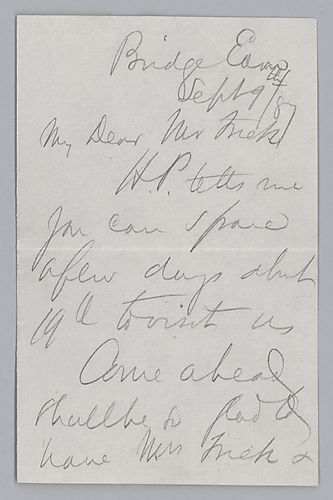 Bridge Camp
Sept 9th/87
My Dear Mr Frick
H.P. tells me
you can spare
a few days about
19th to visit us
Come ahead
shall be so glad to
have Mrs Frick &